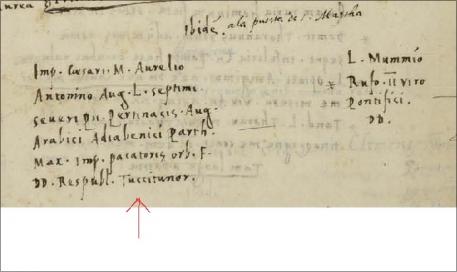 Ibidé. a la puerta de S. Marcha
Imp. Cæsari. M. Aurelio
Antonino Aug. L. septimi.
severi Pii Pertinacis Aug.
Arabici Adiabenici Parth.
Max. Imp. pacatoris orb. F.
DD. Respubl. Tuccitanor.
L. Mummio
Rufo. II viro
Pontifici.
DD.